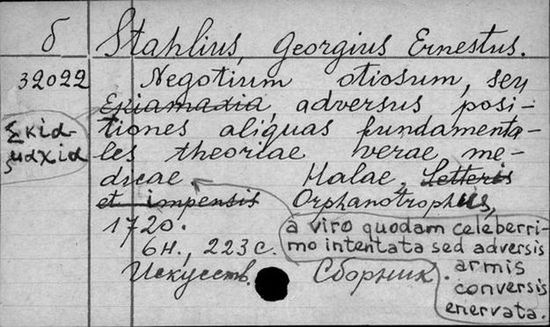 б Stahlius, Georgius Ernestus.
32022 Negotium otiosum, seu
Σκια-
μαχια
Skiamaxia, adversus posi-
tiones aliquas fundamenta-
les theoriae verae me-
dicae Halae, Letteris
et impensis Orphanotrophus,
1720.
6н., 223 с.
a viro quodam celeberri-
mo intentata sed adversis
armis
conversis
enervata.
Искусств. Сборник.